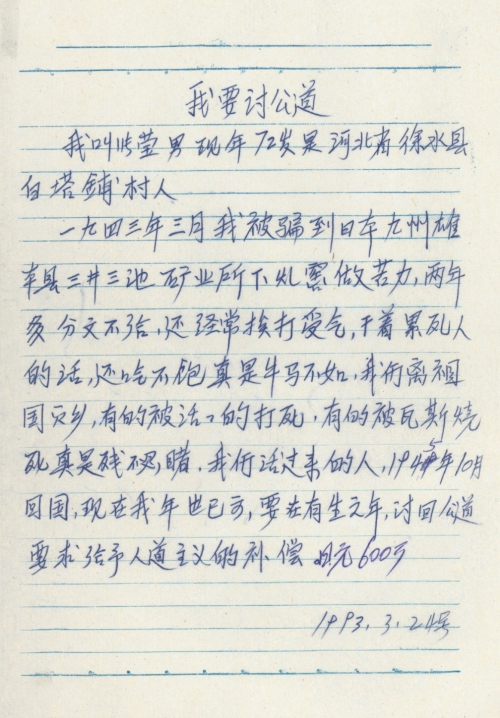 我要讨公道
我叫张莹男现年72岁是河北省徐水县
白塔鋪村人
一九四三年三月我被骗到日本九州雄
本县三井三池矿业所下礼窰做苦力,两年
多分文不给,还经常挨打受气,干着累死人
的活,还吃不饱真是牛马不如,我们离祖
国父乡,有的被活活的打死,有的被瓦斯烧
死真是残不忍睹,我们活过来的人,1945年10月
回国,现在我年也已高,要在有生之年,讨回公道
要求给予人道主义的补偿 日元600万
1993.3.24号